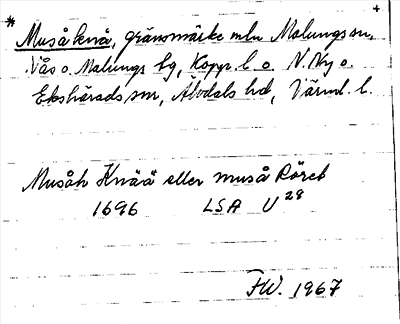 * Musåknä, gränsmärke mln Malungs sn, +
Nås o. Malungs fg, Kopp. l. o. N. Ny o.
Ekshärads snr, Älvdals hd, Värml. l.
Musåh Knää eller muså Röret
1696 LSA U 28
FW. 1967